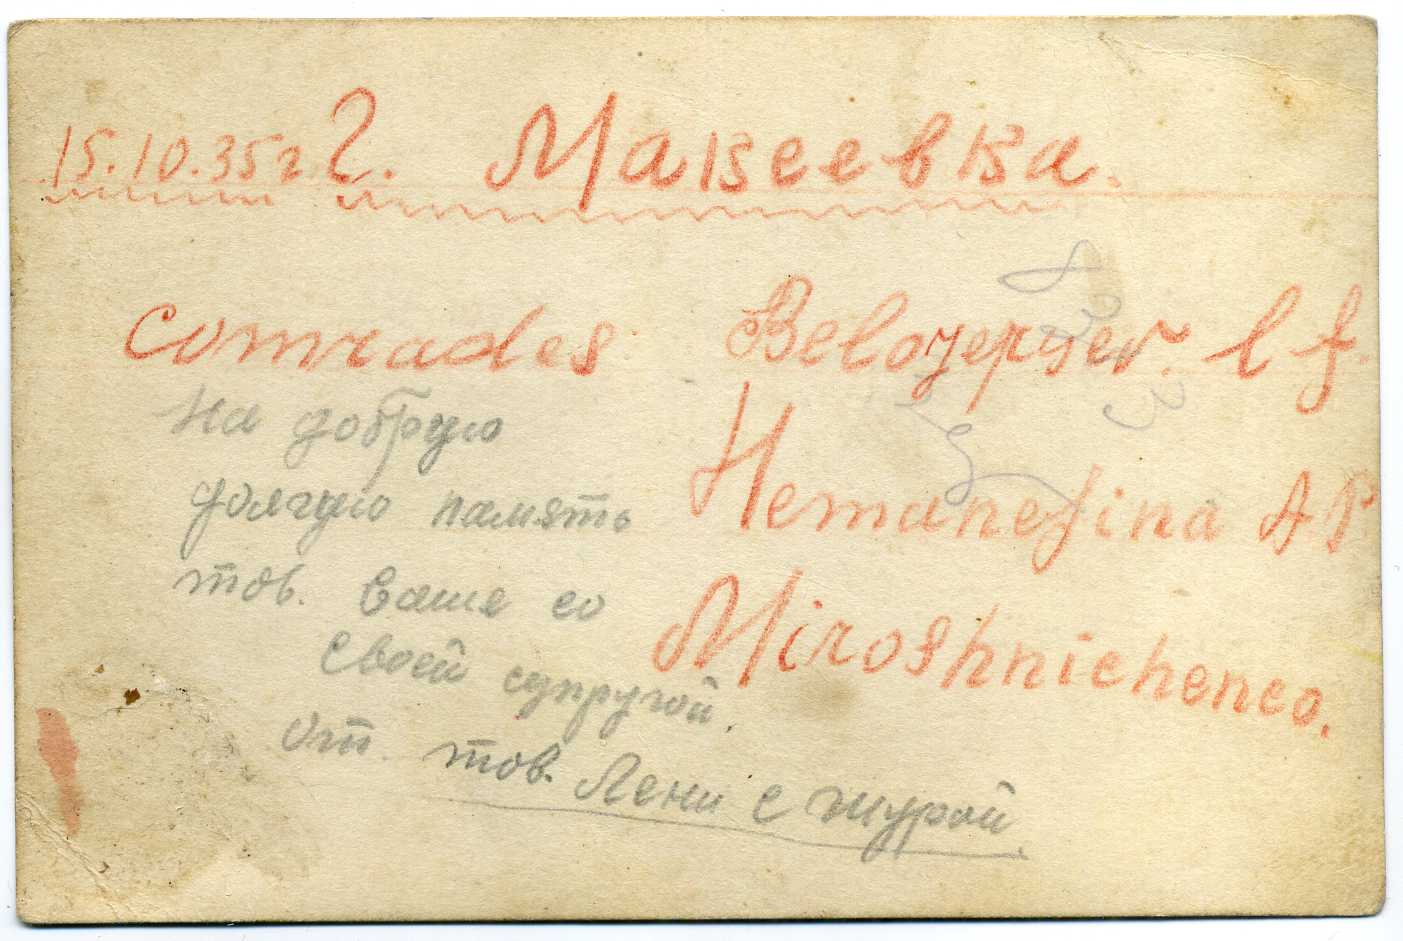 15.10.35г г. Макеевка.
comrades Belozerzev. l f.
На добрую
долгую память
Nemanefina A P
тов. Ваше со
Miroshnichenco.
своей супругой.
От тов. Лени с Шурой